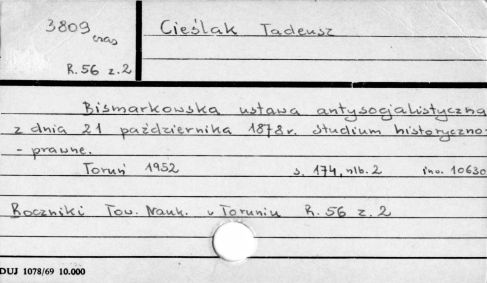 3809
czas
R. 56 z. 2
Cieślak Tadeusz
Bismarkowska ustawa antysocjalistyczna
z dnia 21 października 1878 r. studium historyczno-
- prawne.
Toruń 1952 s. 174, nlb. 2 inw. 10630
Roczniki Tow. Nauk. w Toruniu R. 56 z. 2
DUJ 1078/69 10.000